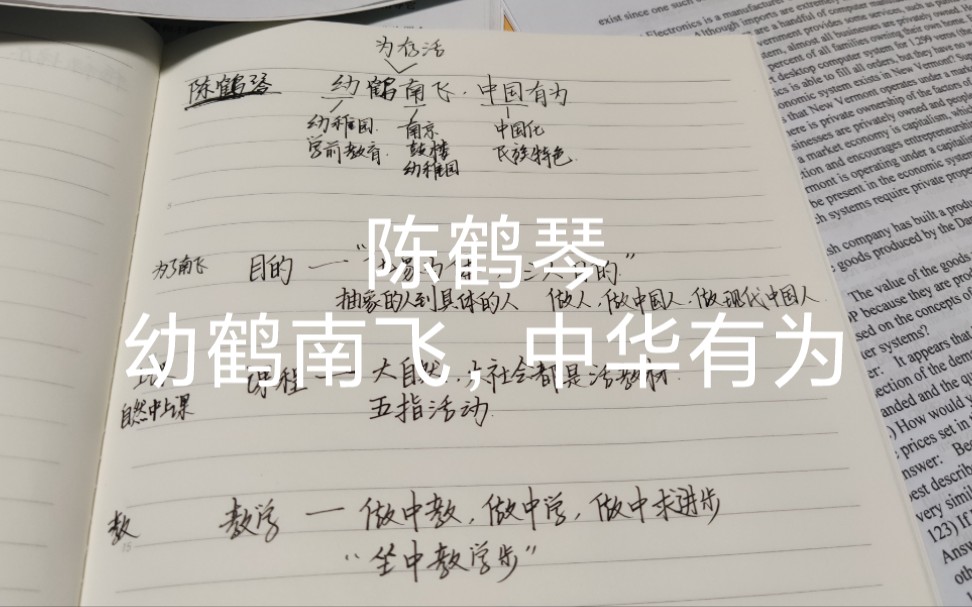 为存活
陈鹤琴 幼鹤南飞.中国有为
幼稚园 南京 中国化
学前教育 鼓楼 民族特色
幼稚园
陈鹤琴
幼鹤南飞,中华有为
为了南飞 目的 — "
抽象的人到具体的人 做人,做中国人,做现代中国人
课程 — 大自然,大社会都是活教材.
自然中上课 五指活动
教 教学 — 做中教,做中学,做中求进步
"坐中教学步"
exist since one such
Electronics is a manufacturer
Although imports are extremely
handful of computer
vernment provides some services, such as
em, almost all businesses are privately owned.
percent of all families owning their own
desktop computer system for 1,299 venus (the
is able to fill all orders, but they have no
onomic system exists in New Vermont?
that New Vermont operates under a market
ere is private ownership of the factors of
sinesses are privately owned and people
a market economy is capitalism, which
tion and encourages entrepreneurship
rmont is operating under a capitalist
be present in the economic system
h systems require private property
sh company has built a produ
goods produced by the Dan
The value of the goods
because they are pro
sed on the concepts of
er systems?
It appears that
ection of the deman
anded and the qu
) How would
prices set in t
nswer: Bec
est describ
very simila
123) If
Answ
oth